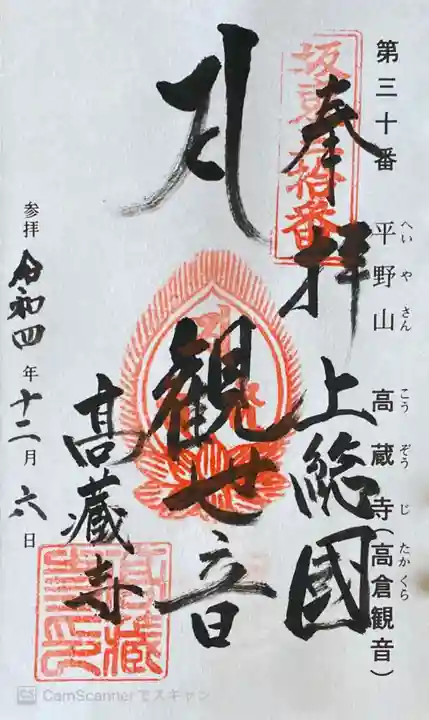 第三十番 平野山 高蔵寺(高倉観音)
へいやさん こうぞうじ たかくら
坂東三拾番
奉拝 上総國
観世音
高藏寺
参拝 令和四年十二月六日
CS CamScannerでスキャン